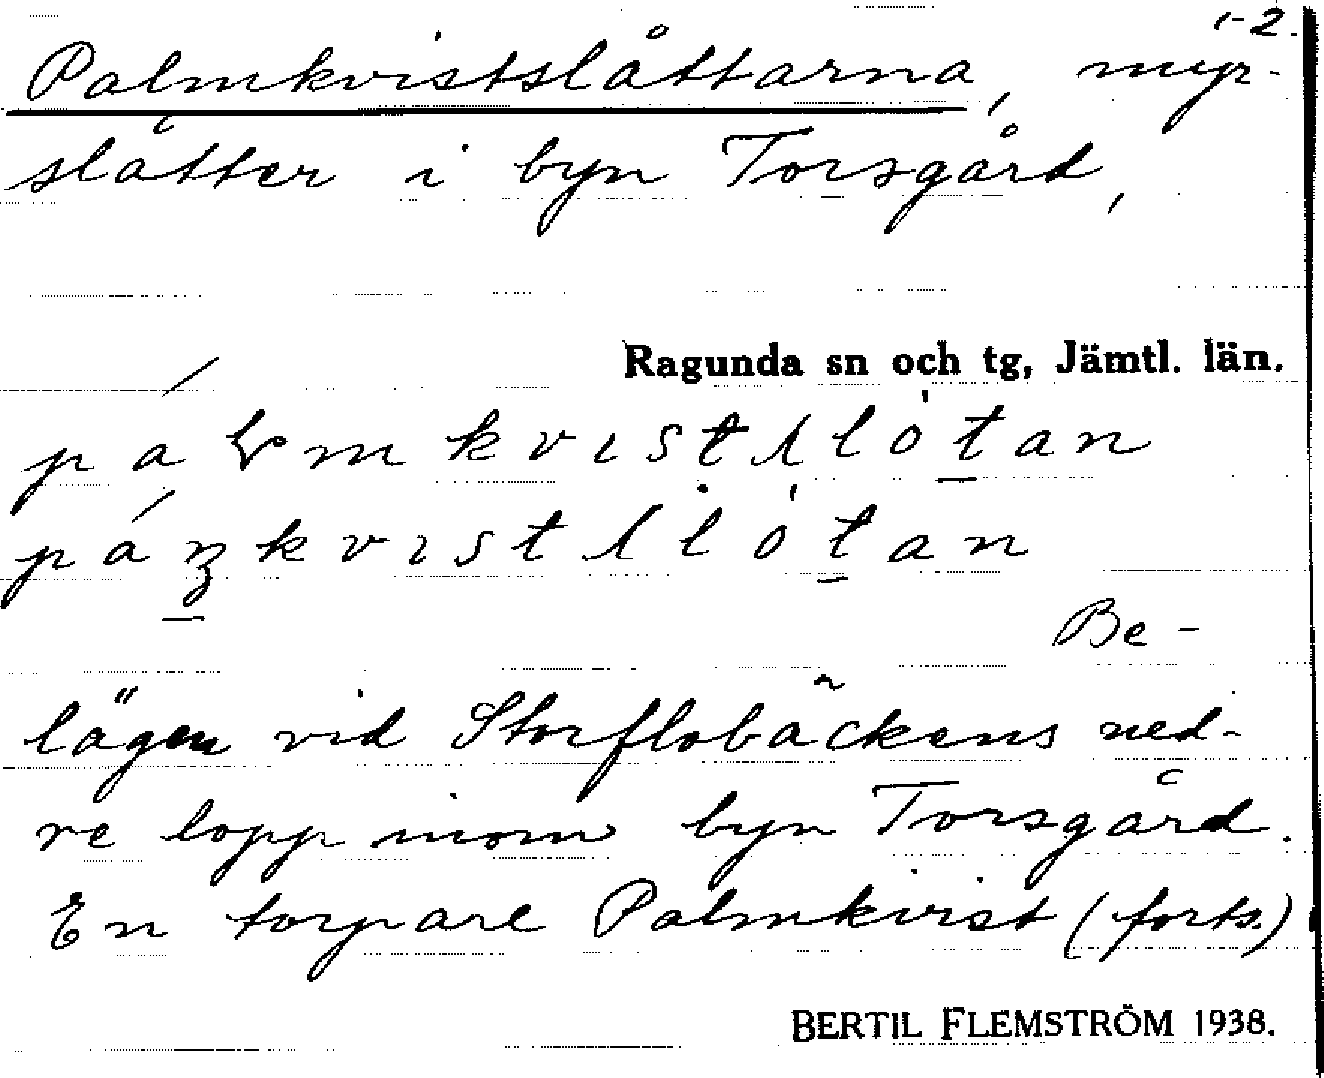 1-2.
Palmkvistslåttarna, myr-
slåtter i byn Torsgård,
Ragunda sn och tg, Jämtl. län.
Be-
lägen vid Storflobäckens ned-
re lopp inom byn Torsgård.
En torpare Palmkvist (forts.)
BERTIL FLEMSTRÖM 1938.